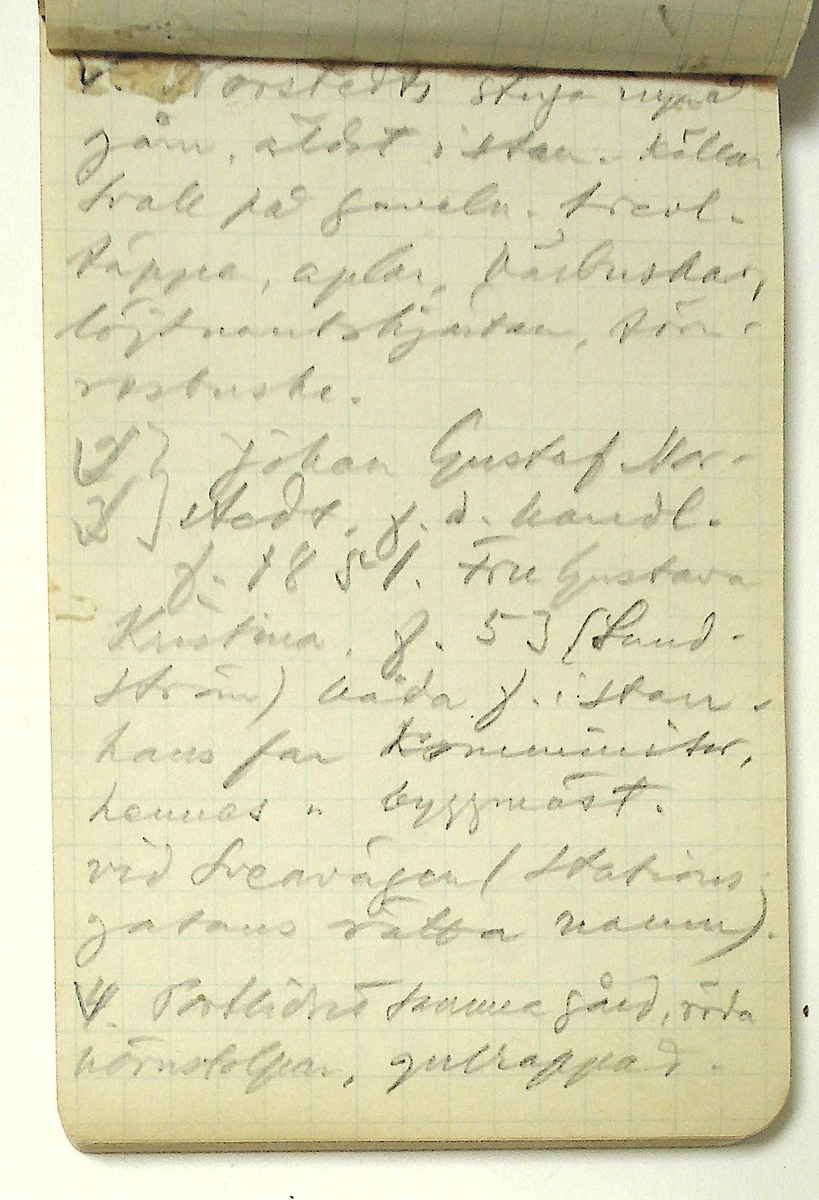 1. Norstedts stuga uppå
gårn, äldst i stan. Källar
svale på gaveln.
täppa, aplar, bärbuskar,
löjtnantshjärtan, törn-
rosbuske.
2] Johan Gustaf Nor-
3] stedt, f. d. handl.
f. 1851. Fru Gustava
Kristina, f. 53 (Sund-
ström) båda f. i stan,
hans far komminister,
hennes " byggmäst.
vid Sveavägen (Stations
gatans rätta namn).
4. Portlidret samma gård, röda
hörnstolpar, gulrappad.